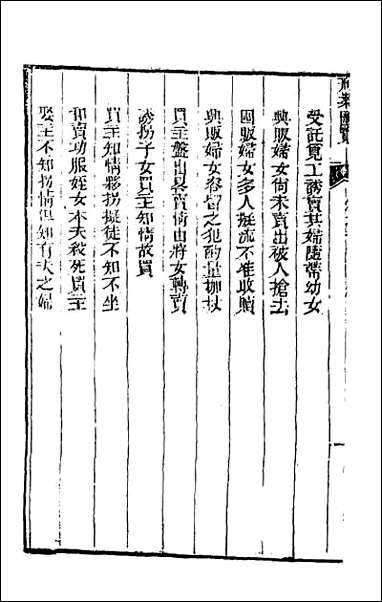 刑案匯覽
受託覓工誘賣其婦隨帶幼女
興販婦女尚未賣出被人搶去
因販婦女多人擬流不准收贖
興販婦女容留之犯酌量枷杖
買主盤出畧賣情由將女轉賣
誘拐子女買主知情故買
買主知情夥拐擬徒不知不坐
和賣功服姪女本夫殺死買主
娶主不知拐情但知有夫之婦